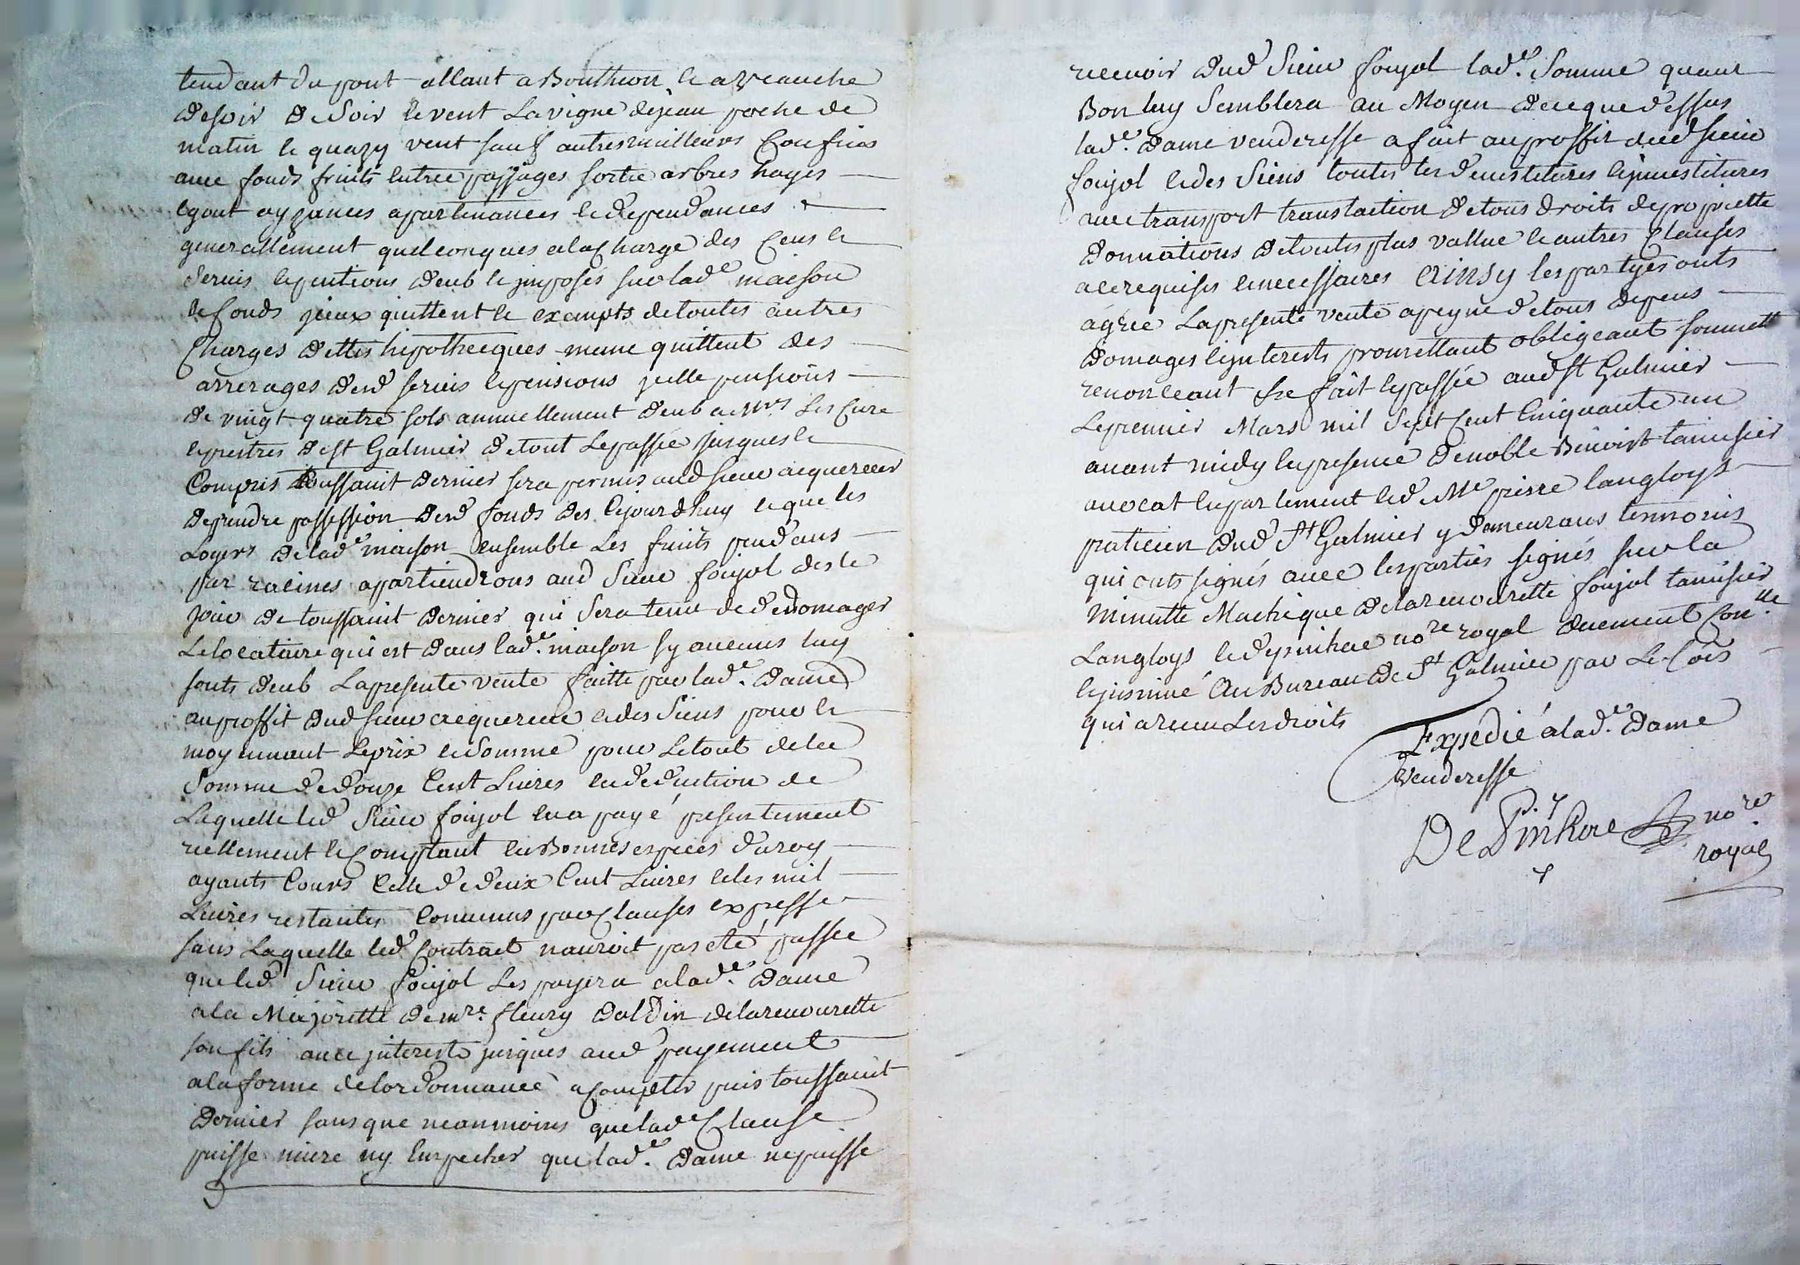 tendant du pont allant a Bouthion, le a Veauche
de soir de soir le vent La vigne de jean poche de
matin le quazy vent sauf autres meilleurs Confins
avec fonds fruits entrée passages sortie arbres hayes
egout ayzances apartenances et dependances
generallement quelconques a la Charge des Cens et
servis et pentions deub et jmposés sur lad.e maison
et fonds jceux quittent et exempts de toutes autres
Charges dettes hipothecques meme quittent des
arrerages desd servis et pensions jcelle pensions
de vingt quatre sols annuellement deub a Mrs Les Cure
et pretres de st Galmier de tout Le passé jusques et
Compris toussaint dernier sera permis aud sieur acquereur
de prendre possession desd fonds des cejourdhuy et que les
Loyers de lad.e maison ensemble Les fruits pendans
par racines apartiendrons aud Sieur foujol des le
jour de toussaint dernier qui sera tenu de dedomager
Le locataire qui est dans lad.e maison sy aucuns luy
sonts deub La presente vente faitte par lad.e Dame
au proffit dud sieur acquereur et des siens pour et
moyennant Le prix et somme pour Le tout de la
Somme de douze Cent Livres en deduction de
Laquelle led Sieur foujol en a payé presentement
reellement et Comptant en Bonnes especes du roy
ayants Cours Celle de deux Cent Livres et les mil
Livres restantes Convenus par Clauses expresse
sans Laquelle led Contract nauroit pas eté passée
que led Sieur foujol Les payera a lad.e Dame
a la Majoritté de mre fleury Daldin delaremourette
son fils avec jnterests jusques aud payement
a la forme de lordonnance a Compter puis toussaint
Dernier sans que neanmoins que lad.e Clause
puisse nuire ny Empecher que lad.e Dame ne puisse
recevoir dud Sieur foujol lad.e Somme quant
Bon luy Semblera au Moyen de ce que dessus
lad.e Dame venderesse a fait au proffit dud sieur
foujol et des siens toutes les devestitures et jnvestitures
avec transport translaction de tous droits de propriette
donnations de toutes plus vallue et autres Clauses
a ce requises et necessaires Et ainsy les partyes onts
agrée La presente vente a peyne de tous depens
Domages et jnterests promettant obligeant soumett
renonceant fre fait et passée aud st Galmier
Le premier Mars mil Sept Cent Cinquante un
avant midy en presence de noble Benoist tamisier
avocat en parlement et d Me pierre langloys
praticien dud St Galmier y demeurans temmoins
qui onts signés avec les parties signés sur la
Minutte Machique delaremourette foujol tamisier
Langloys et depinhac nore royal duement Con.lle
et jnsinué au Bureau de St Galmier par Le Cois
qui a receu Les droits
Expedié a lad.e Dame
Venderesse
De Pinhac nore
royal